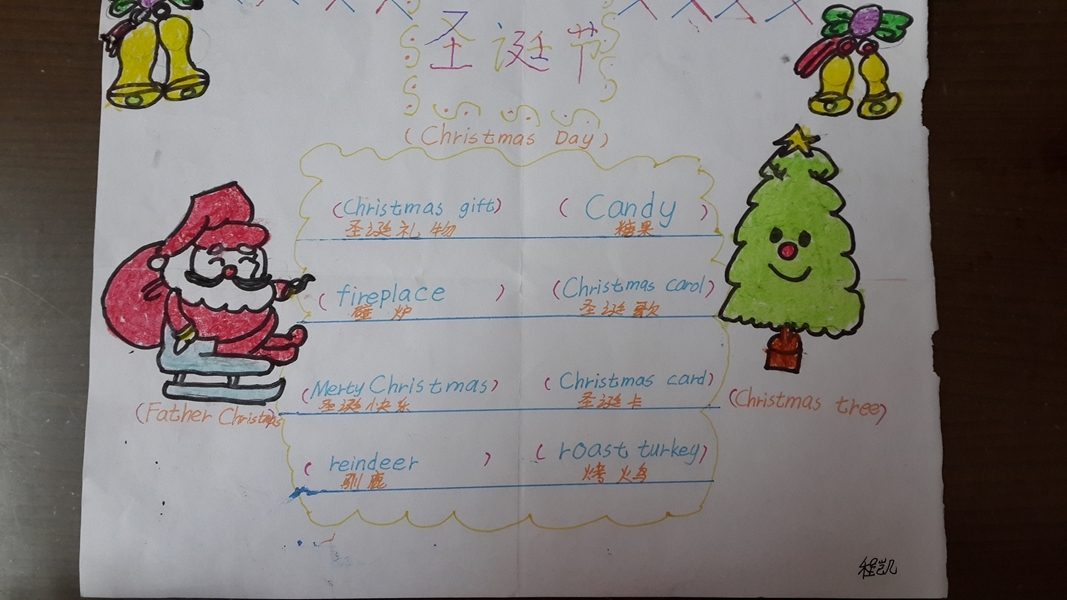 圣诞节
(Christmas Day)
(Christmas gift) (Candy)
圣诞礼物 糖果
(fireplace) (Christmas carol)
壁炉 圣诞歌
(Merty Christmas) (Christmas card)
圣诞快乐 圣诞卡
(Father Christmas) (Christmas tree)
(reindeer) (roast turkey)
驯鹿 烤火鸡
程凯